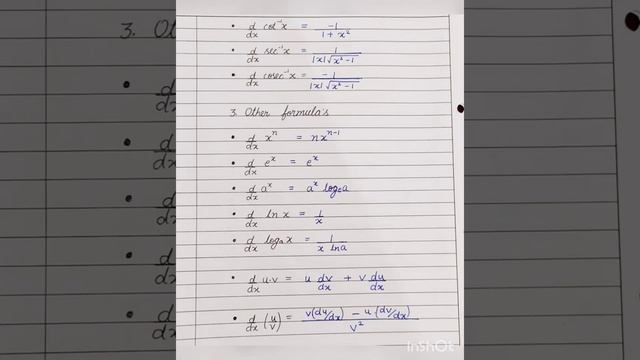 • d/dx cot⁻¹x = -1/(1 + x²)
• d/dx sec⁻¹x = 1/(|x|√(x² - 1))
• d/dx cosec⁻¹x = -1/(|x|√(x² - 1))
3. Other formula's
• d/dx xⁿ = nxⁿ⁻¹
• d/dx eˣ = eˣ
• d/dx aˣ = aˣ logₑa
• d/dx ln x = 1/x
• d/dx logₐx = 1/(x ln a)
• d/dx u.v = u dv/dx + v du/dx
• d/dx (u/v) = (v(du/dx) - u(dv/dx))/v²
InShot